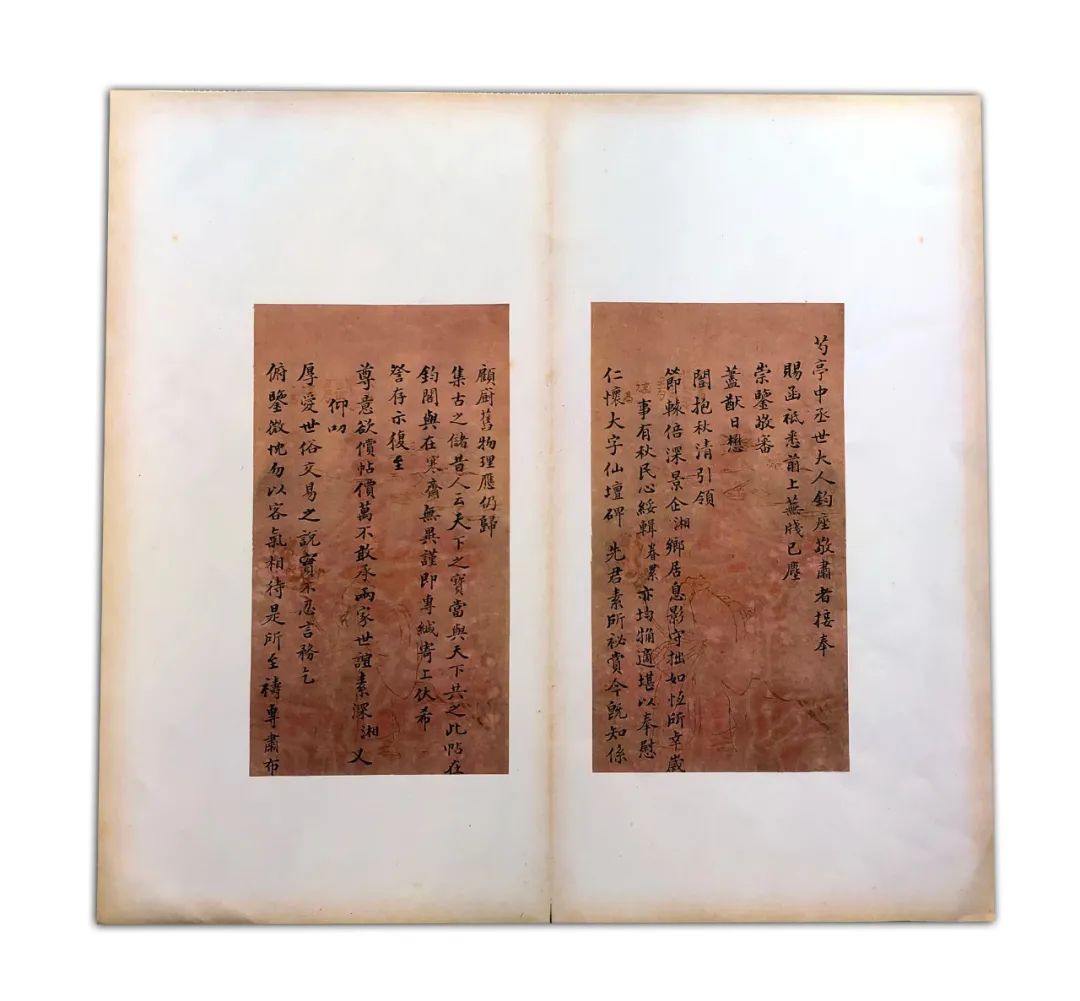 芍亭中丞世大人鈞座敬肅者接奉
賜函祗悉前上蕪牋已塵
崇鑒敬審
藎猷日懋
闓抱秋清引領
節轅倍深景企湘鄉居息影守拙如恆所幸歲
事有秋民心綏輯眷累亦均獲適堪以奉慰
仁懷大字仙壇碑 先君素所祕賞今既知係
顧廚舊物理應仍歸
集古之儲昔人云天下之寶當與天下共之此帖在
鈞閣與在寒齋無異謹即專緘寄上伏希
詧存示復至
尊意欲價帖價萬不敢承兩家世誼素深湘又
仰叨
厚愛世俗交易之說實不忍言務乞
俯鑒微忱勿以客氣相待是所至禱專肅布